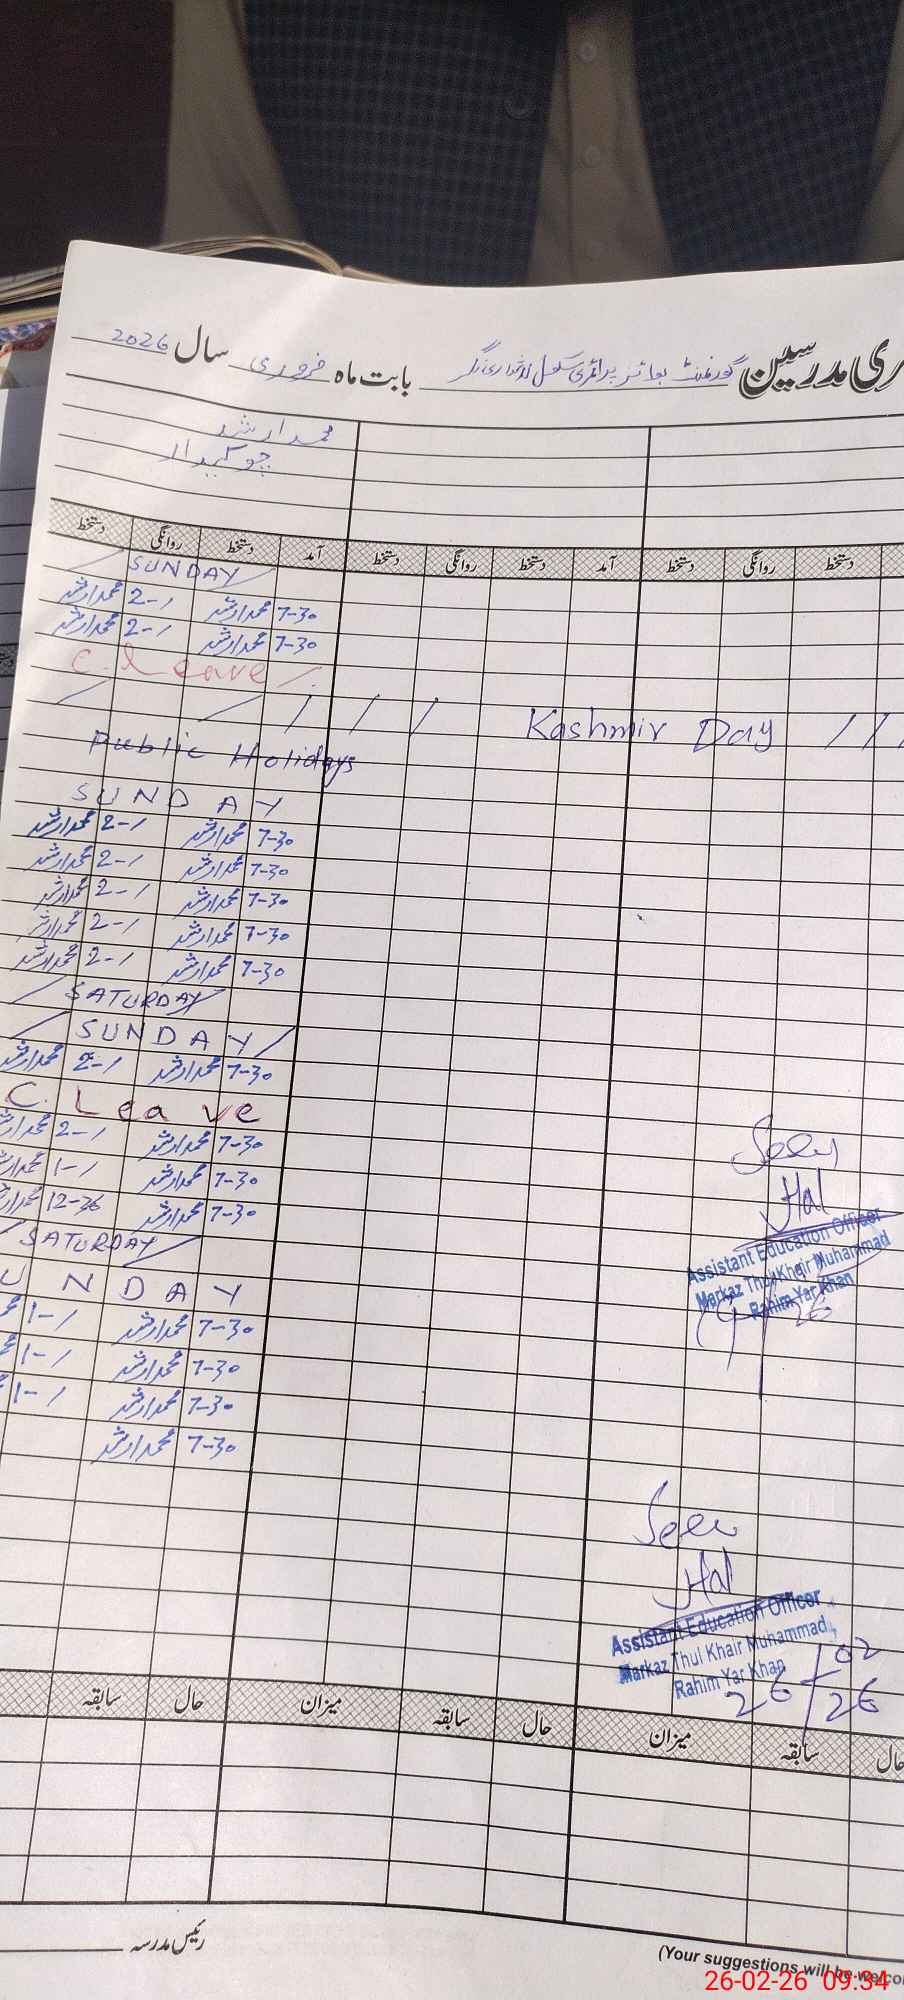 ری مدرسین گورنمنٹ بوائز پرائمری سکول بابت ماہ فروری سال 2026
محمد ارشد
چوکیدار
دستخط روانگی دستخط آمد دستخط روانگی دستخط آمد دستخط روانگی دستخط
SUNDAY
7-30 محمد ارشد 2-1 محمد ارشد
7-30 محمد ارشد 2-1 محمد ارشد
C. Leave
Kashmir Day
Public Holidays
SUNDAY
7-30 محمد ارشد 2-1 محمد ارشد
7-30 محمد ارشد 2-1 محمد ارشد
7-30 محمد ارشد 2-1 محمد ارشد
7-30 محمد ارشد 2-1 محمد ارشد
7-30 محمد ارشد 2-1 محمد ارشد
SATURDAY
SUNDAY
7-30 محمد ارشد 2-1 محمد ارشد
C. Leave
7-30 محمد ارشد 2-1 محمد ارشد
7-30 محمد ارشد 1-1 محمد ارشد
7-30 محمد ارشد 12-36 محمد ارشد
SATURDAY
UNDAY
7-30 محمد ارشد 1-1
7-30 محمد ارشد 1-1
7-30 محمد ارشد 1-1
7-30 محمد ارشد
Seen
Assistant Education Officer
Markaz Thul Khair Muhammad
Rahim Yar Khan
Seen
Assistant Education Officer
Markaz Thul Khair Muhammad
Rahim Yar Khan
26/02/26
سابقہ حال میزان سابقہ حال میزان سابقہ حال
رئیس مدرسہ
(Your suggestions will be welco
26-02-26 09:34